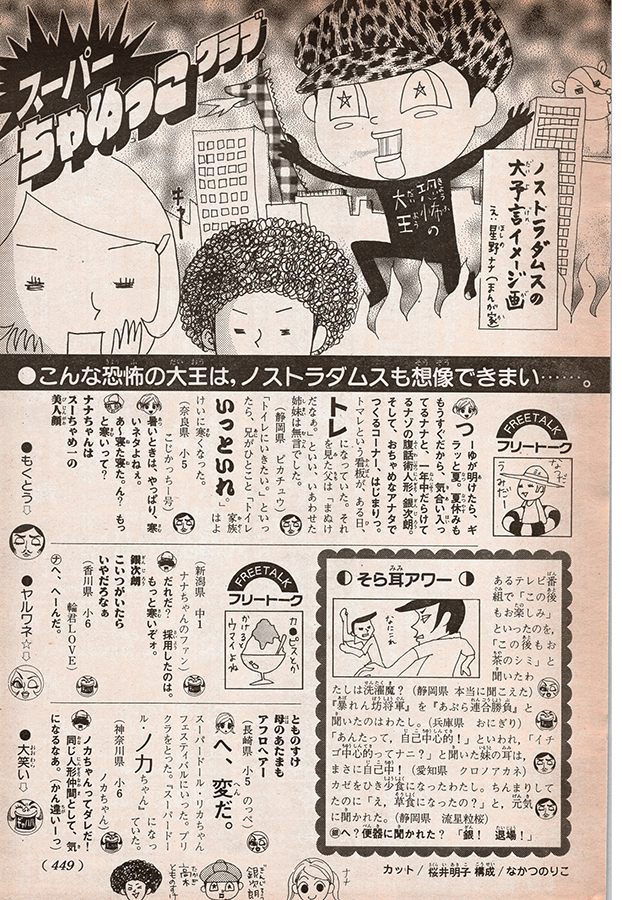 スーパー
ちゃめっこ
クラブ
ノストラダムスの
大予言イメージ画
え・星野ナナ(まんが家)
恐怖の
大王
●こんな恐怖の大王は,ノストラダムスも想像できまい……。
FREETALK
フリートーク
つーゆが明けたら、ギ
ラッと夏。夏休みも
もうすぐだから、気合い入っ
てるナナと、一年中だらけて
るナゾの腹話術人形、銀次朗。
そして、おちゃめなアナタで
つくるコーナー、はじまりっ。
トマレという看板が、ある日、
トレ
になっていた。それ
を見た父は「まぬけ
だなぁ。」といい、いあわせた
姉妹は無言でした。
(静岡県 ピカチュウ)
「トイレにいきたい。」といっ
たら、兄がひとこと「トイレ
いっといれ。」
家族
はよ
けいに寒くなった。
こじかっち1号)
(奈良県 小5
暑いときは、やっぱり、寒
いネタよねぇ。
あ〜寝た寝た。ん?もっ
と寒いって?
ナナちゃんは
スーちゃめ一の
美人顔
(新潟県 中1
ナナちゃんのファン)
だれだ? 採用したのは。
もっと寒いぞォ。
銀次朗
こいつがいたら
いやだろなぁ
輪君LOVE)
(香川県 小6
ナへ、へーんだ。
FREETALK
フリートーク
カ・ピスとか
かけると
ウマイよね
なつだ
うみだー
そら耳アワー
なにこれ
あるテレビ番
組で「この後
もお楽しみ」
といったのを,
「この後もお
茶のシミ」と
聞いたわ
たしは洗濯魔?(静岡県 本当に聞こえた)
『暴れん坊将軍』を『あぶら連合勝負』と
聞いたのはわたし。(兵庫県 おにぎり)
「あんたって,自己中心的!」といわれ,「イチ
ゴ中心的ってナニ?」と聞いた妹の耳は,
まさに自己中!(愛知県 クロノアカネ)
カゼをひき少食になったわたし。ちんまりして
たのに「え,草食になったの?」と,元気
に聞かれた。(静岡県 流星粒桜)
銀へ?便器に聞かれた?「銀! 退場!」
とものすけ
母のあたまも
アフロヘアー
(長崎県 小5 のっぺ)
へ、変だ。
スーパードール・リカちゃん
フェスティバルにいった。プリ
クラをとった。『スーパードー
ル・ノカちゃん』になっ
ていた。
ノカちゃん)
(神奈川県 小6
ノカちゃんってダレだ!
同じ人形仲間として、気
になるなあ。(かん違いー?)
●もくとう⇩
●ヤルワネ☆⇩
●大笑い⇩
(449)
高木
とものすけ
銀次朗
ナナ
カット/桜井明子 構成/なかつのりこ